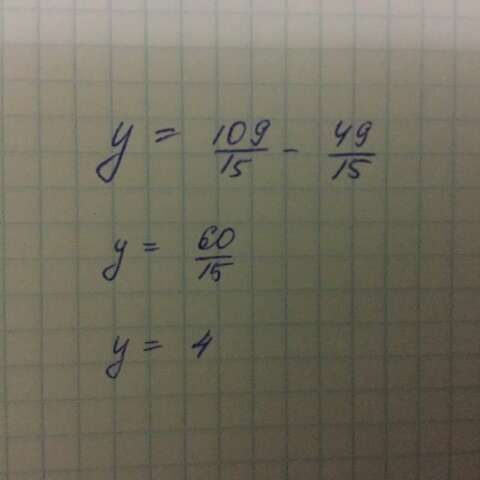 y = 109/15 - 49/15
y = 60/15
y = 4